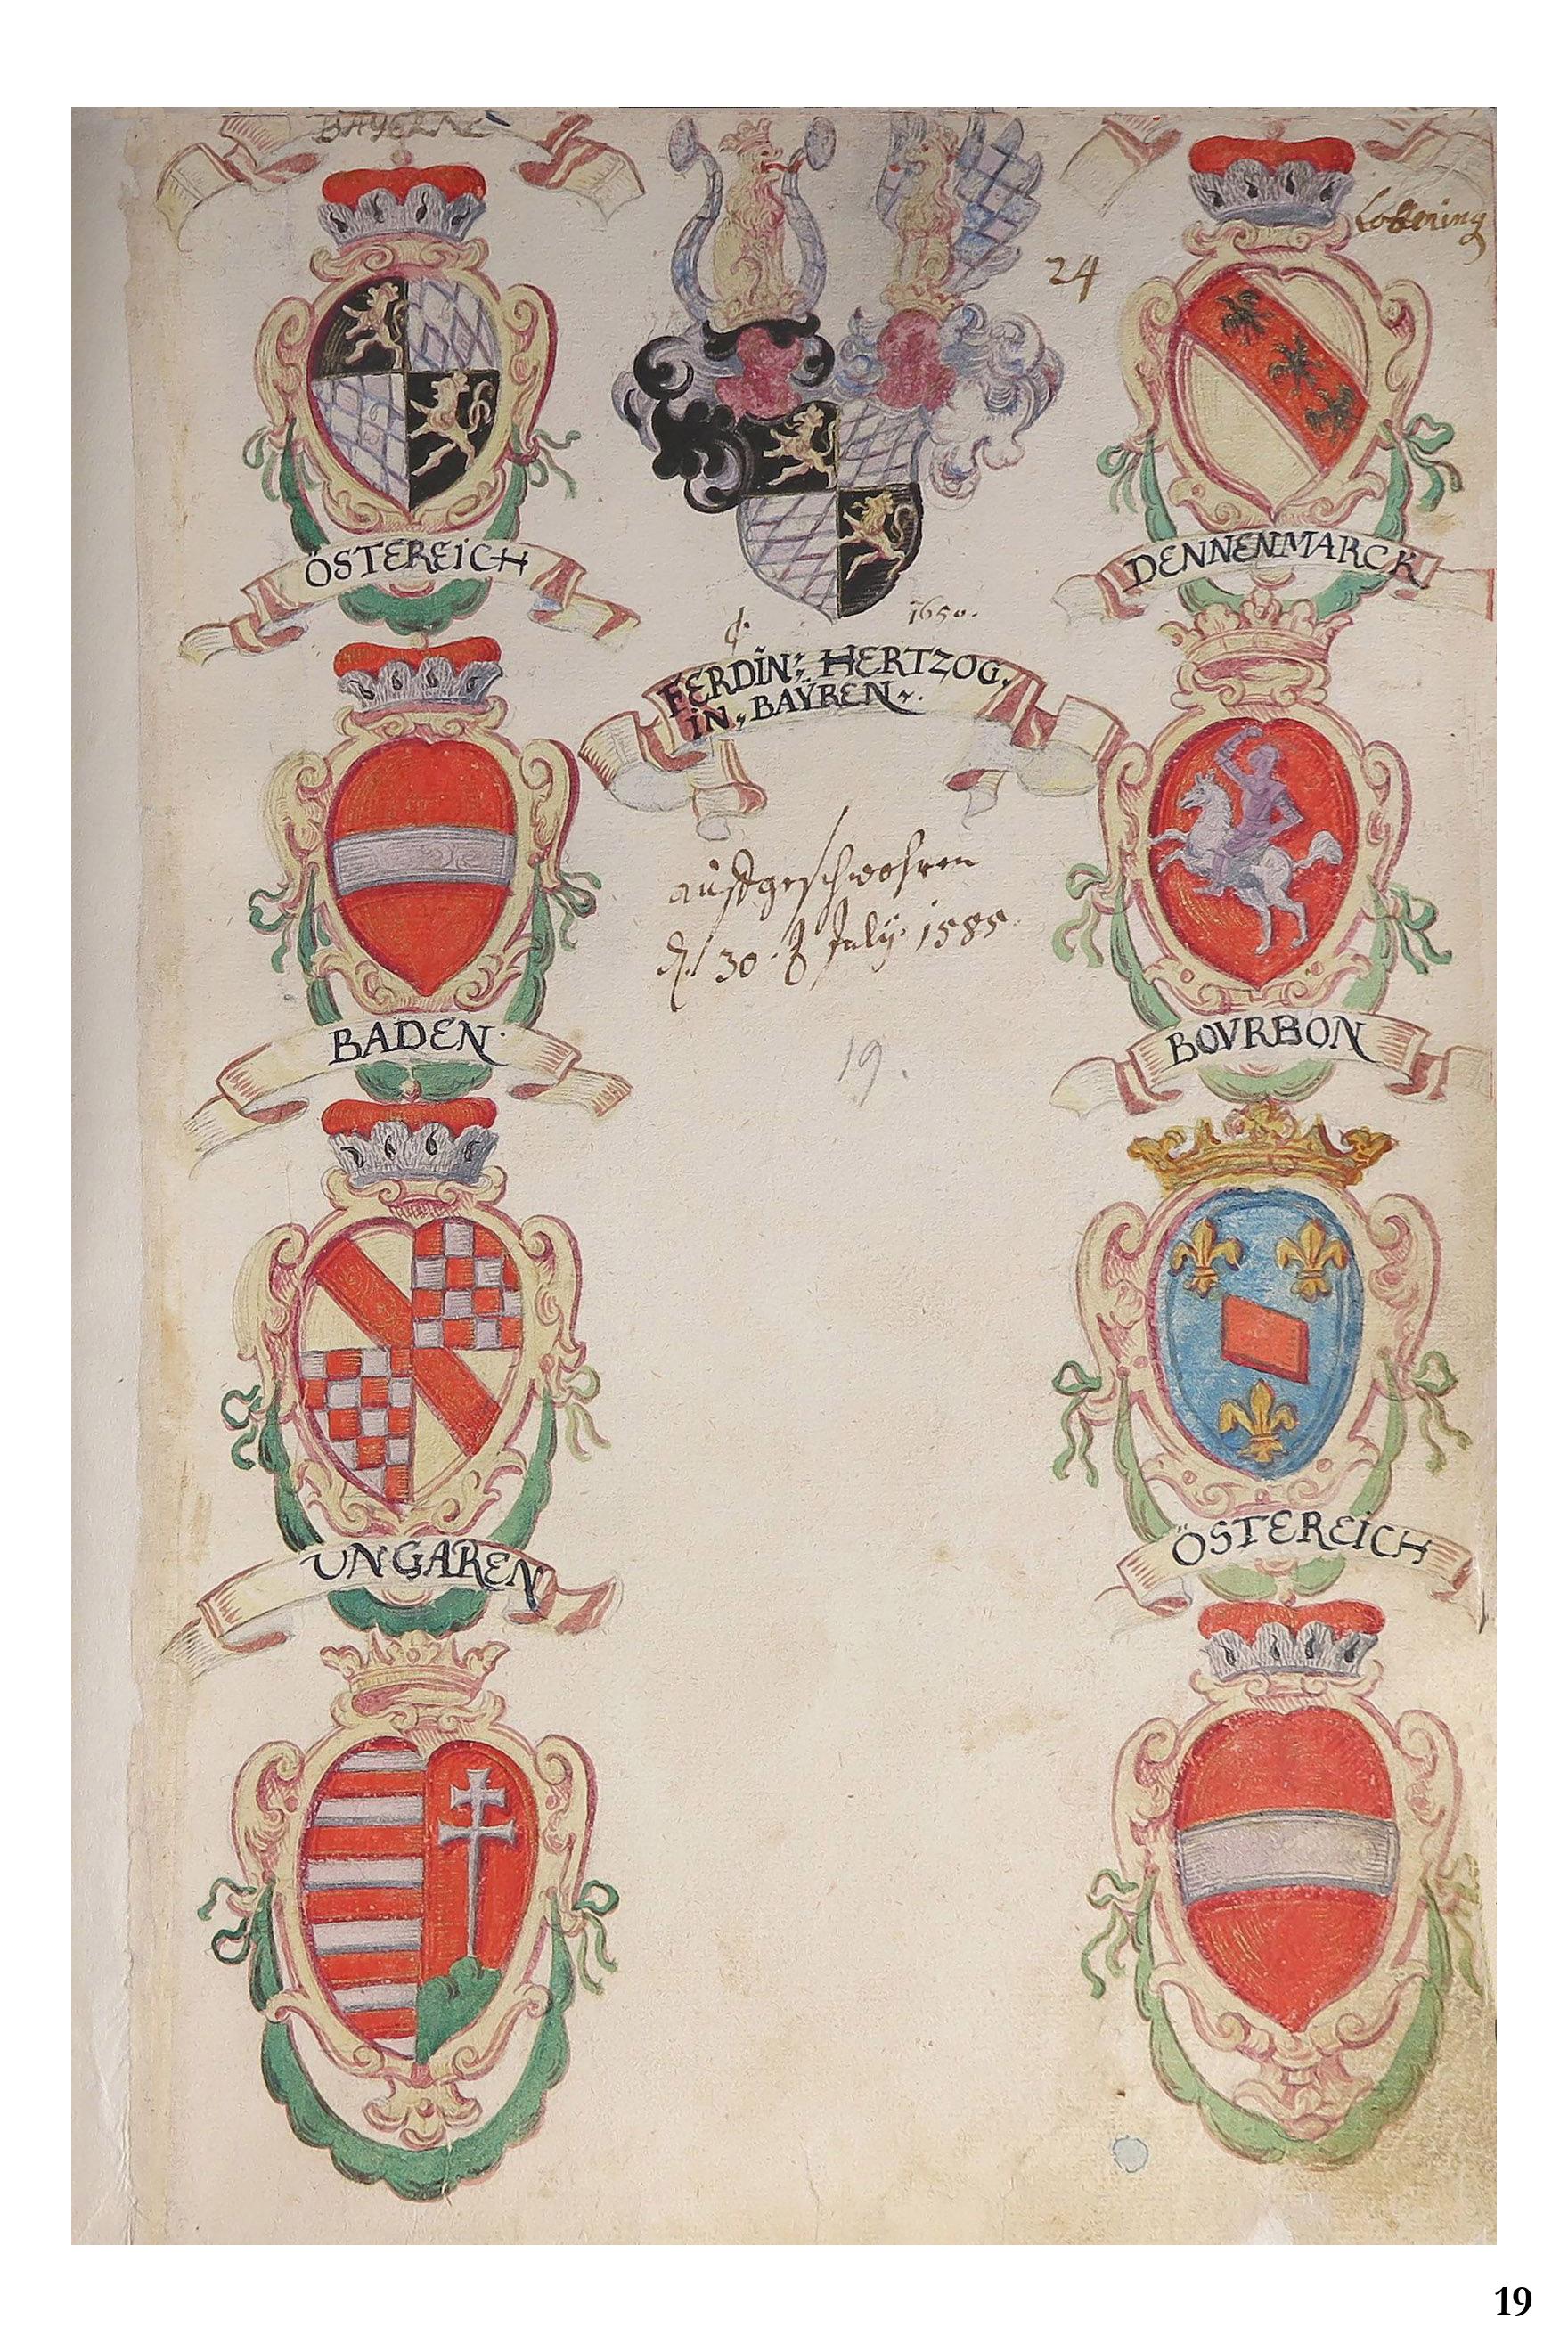 BAYERN
Lottering
24
ÖSTEREICH
DENNENMARCK
1650.
FERDIN: HERTZOG.
IN. BAŸREN.
aufgeschwohren
d. 30. July. 1585.
19.
BADEN.
BOVRBON
UNGAREN
ÖSTEREICH
19